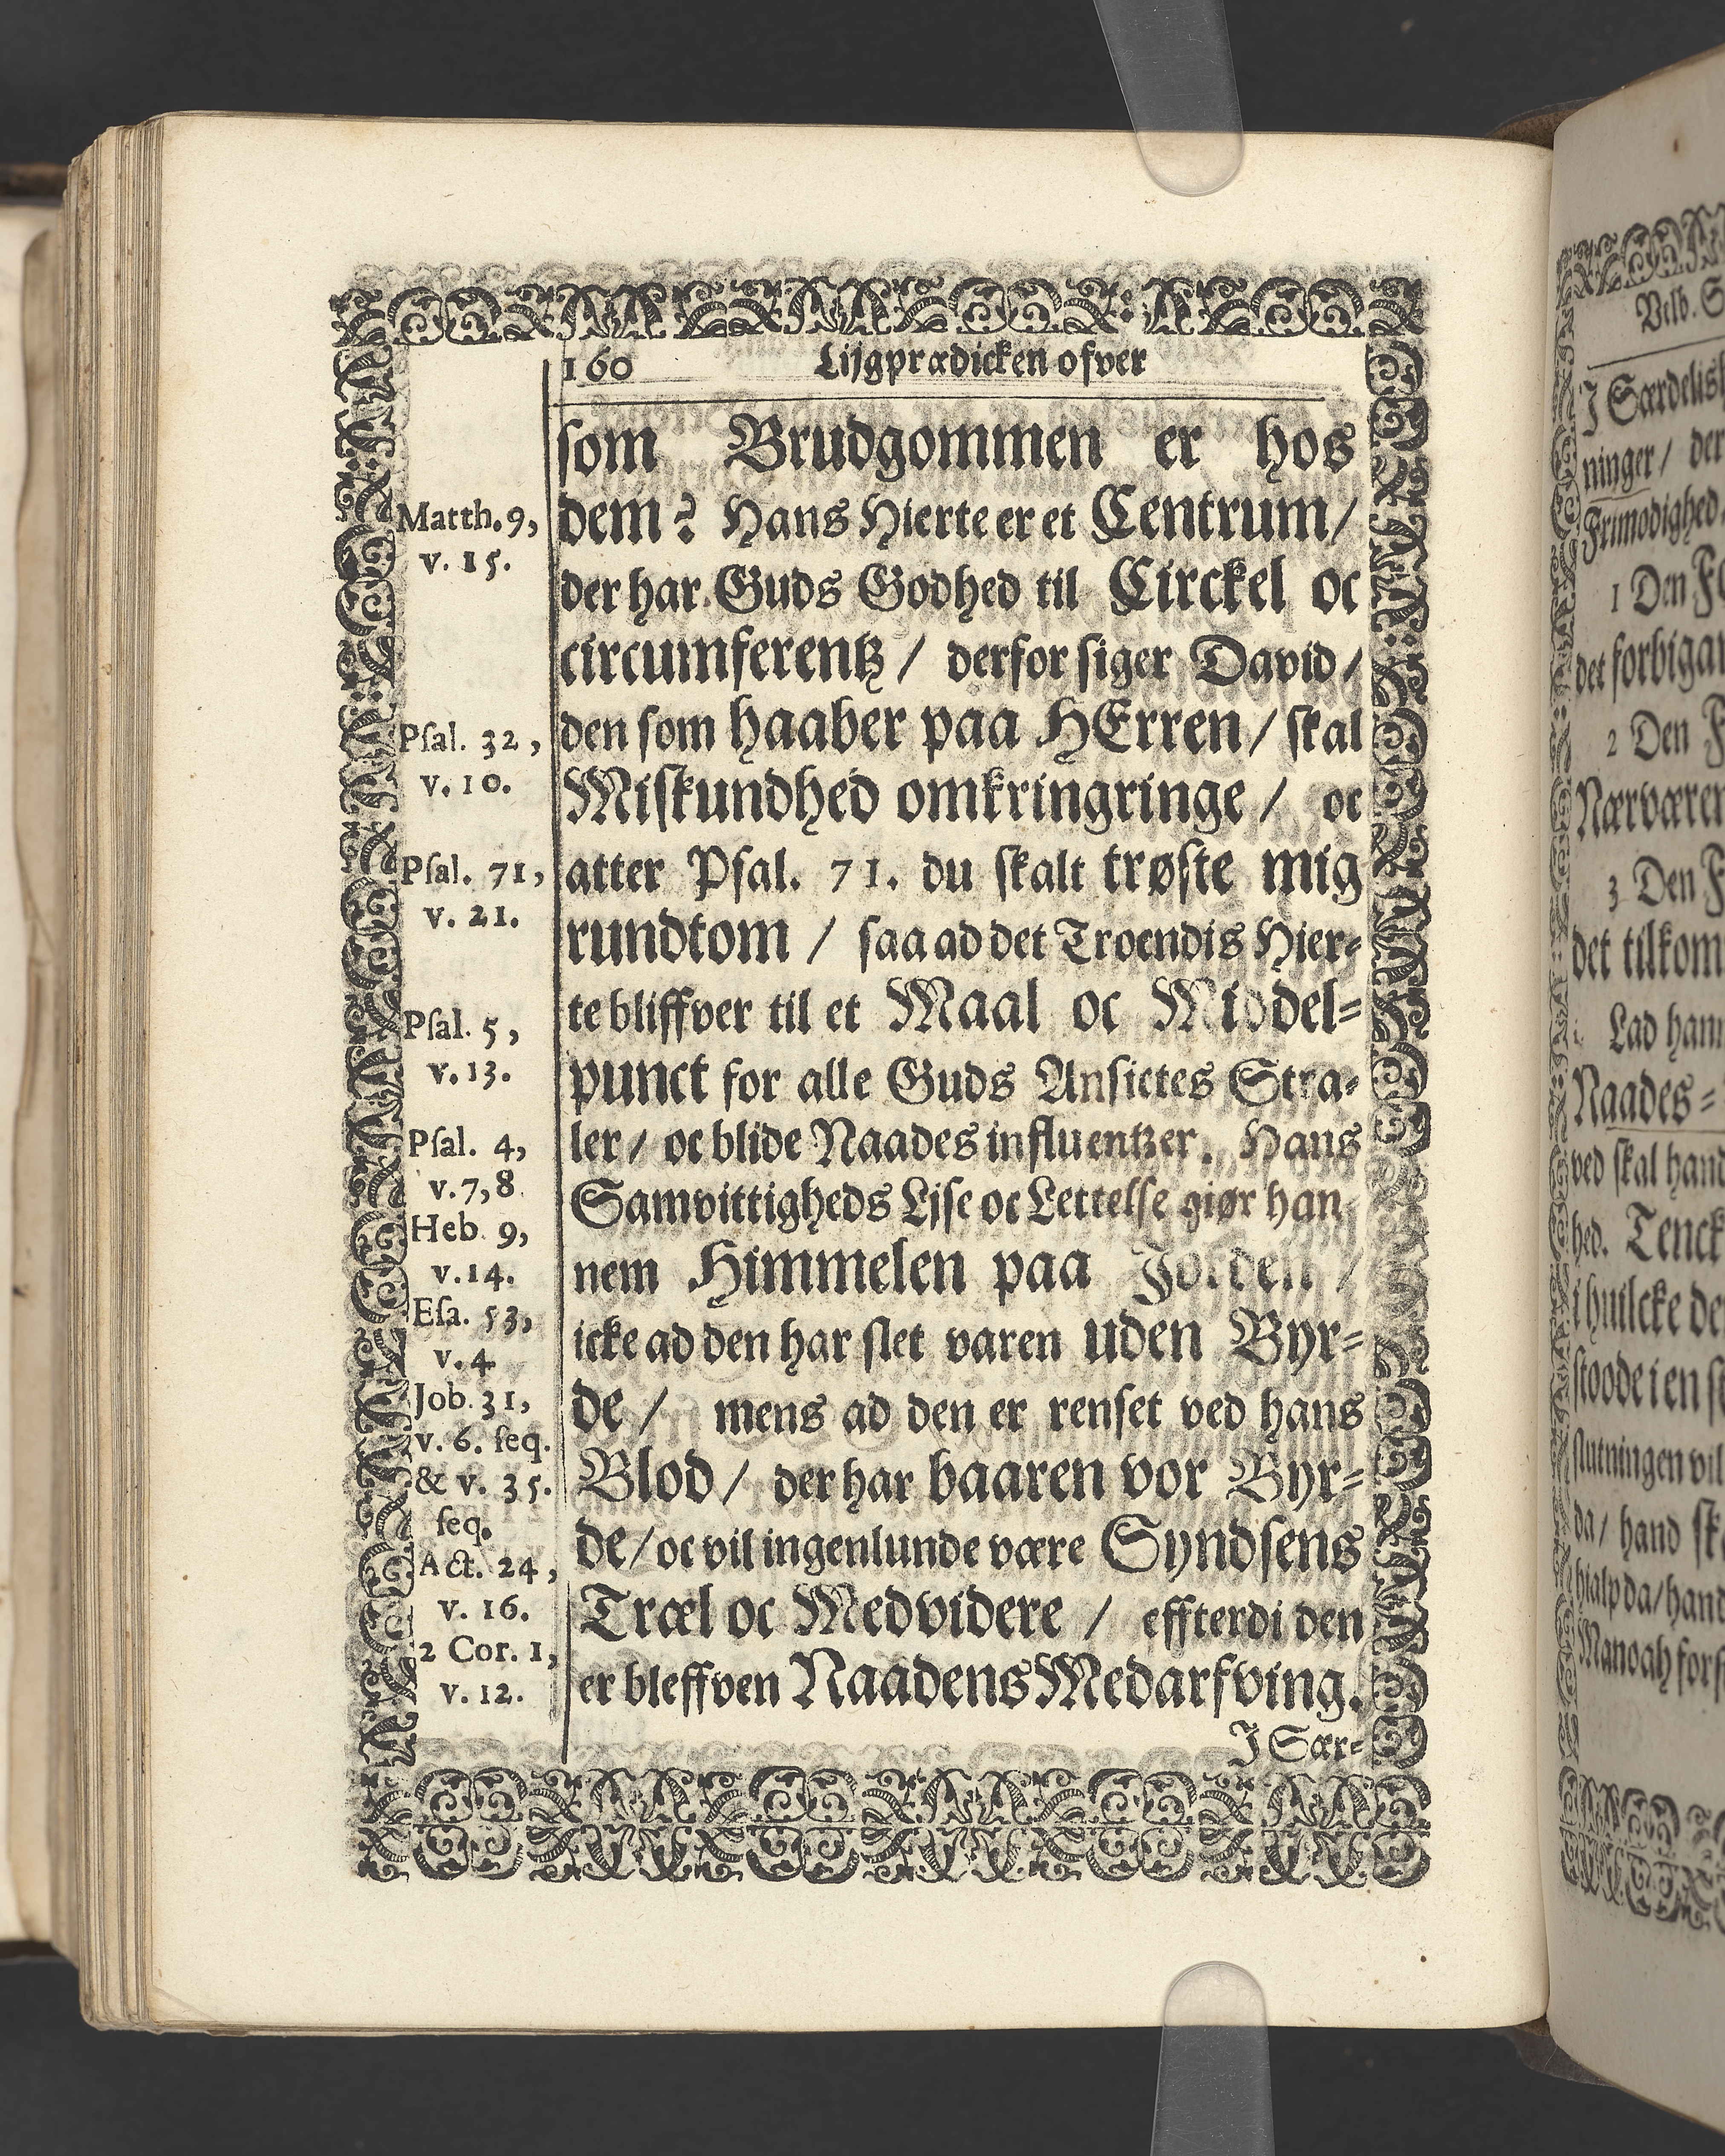 160 Lijgprædicken ofver
som Brudgommen er hos
dem? Hans Hierte er et Centrum/
der har Guds Godhed til Circkel oc
circumferentz/ derfor siger David/
den som haaber paa HErren/ skal
Miskundhed omkringringe/ oc
atter Psal. 71. du skalt trøste mig
rundtom/ saa ad det Troendis Hier-
te bliffver til et Maal oc Middel-
punct for alle Guds Ansictes Stra-
ler/ oc blide Naades influentzer. Hans
Samvittigheds Lise oc Lettelse giør han
nem Himmelen paa Jorden/
icke ad den har slet varen uden Byr-
de/ mens ad den er renset ved hans
Blod/ der har baaren vor Byr-
de/ oc vil ingenlunde være Syndsens
Træl oc Medvidere/ effterdi den
er bleffven Naadens Medarfving.
J Sær-
Matth. 9,
v. 15.
Psal. 32,
v. 10.
Psal. 71,
v. 21.
Psal. 5,
v. 13.
Psal. 4,
v. 7, 8
Heb. 9,
v. 14.
Esa. 53,
v. 4
Job. 31,
v. 6. seq.
& v. 35.
seq.
Act. 24,
v. 16.
2 Cor. 1,
v. 12.
Velb.
J Særdelis
ninger/ der
Frimodighed
1 Den
det forbigan
2 Den
Nærværen
3 Den
det tilkom
Lad hann
Naades-
ved skal hand
hed. Tenck
i huilcke de
stoode i en
slutningen vil
da/ hand sk
hialp da/ hand
Manoah fors